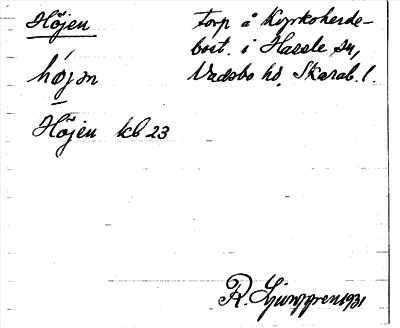 Höjen
torp å Kyrkoherde-
bost. i Hassle sn,
Vadsbo hd, Skarab. l.
höjən
Höjen kb 23
R. Ljunggren 1931